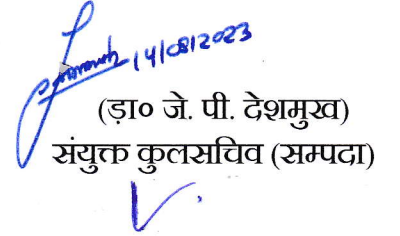 14/08/2023
(ड़ा० जे. पी. देशमुख)
संयुक्त कुलसचिव (सम्पदा)